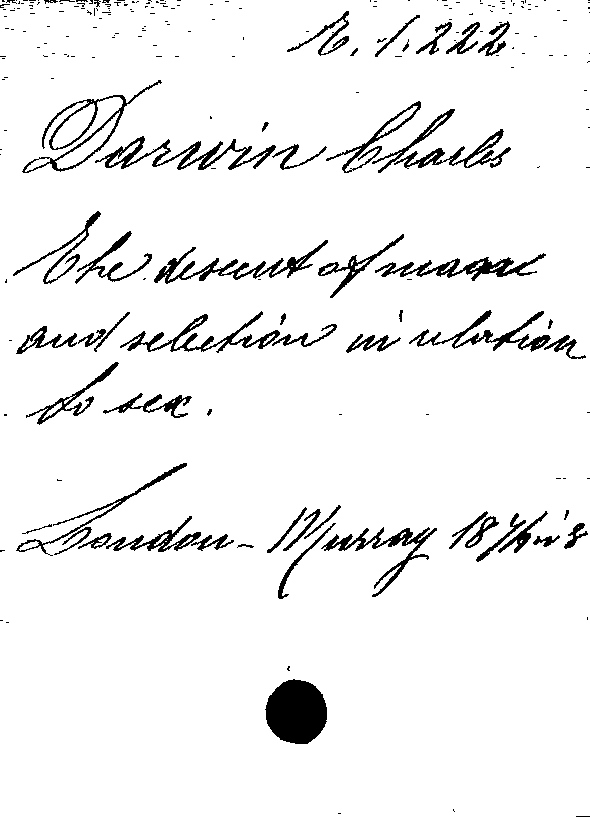 E.1.222
Darwin Charles
The descent of man
and selection in relation
to sex.
London - Murray 18